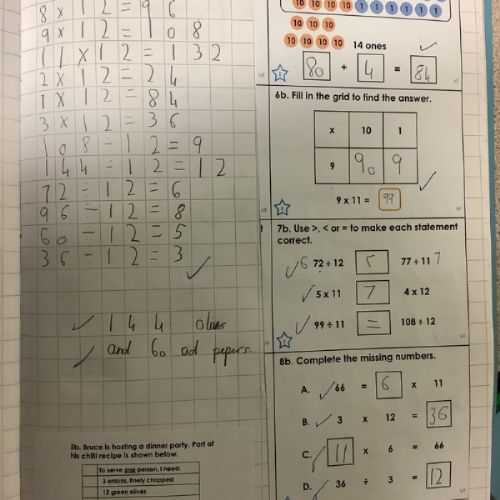 8 x 12 = 96
9 x 12 = 108
11 x 12 = 132
2 x 12 = 24
1 x 12 = 84
3 x 12 = 36
108 ÷ 12 = 9
144 ÷ 12 = 12
72 ÷ 12 = 6
96 ÷ 12 = 8
60 ÷ 12 = 5
36 ÷ 12 = 3
144 olives
and 60 red pepers
5b. Bruce is hosting a dinner party. Part of
his chilli recipe is shown below.
To serve one person, I need:
3 onions, finely chopped
12 green olives
10 10 10 10 1 1 1 1 1 1
10 10 10
10 10 10 10
14 ones
80 + 4 = 84
VF
6b. Fill in the grid to find the answer.
x 10 1
9 90 9
9 x 11 = 99
VF
7b. Use >, < or = to make each statement
correct.
6 72 ÷ 12 < 77 ÷ 11 7
5 x 11 > 4 x 12
99 ÷ 11 = 108 ÷ 12
VF
8b. Complete the missing numbers.
A. 66 = 6 x 11
B. 3 x 12 = 36
C. 11 x 6 = 66
D. 36 ÷ 3 = 12
VF